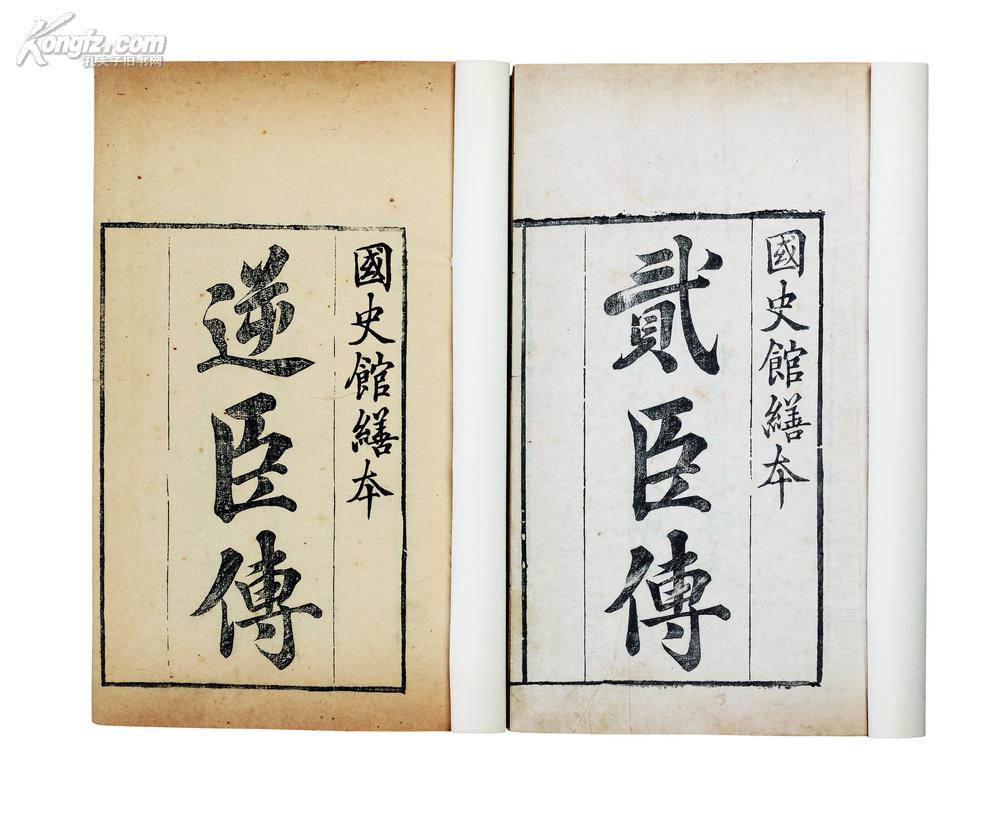 Kongfz.com
孔夫子旧书网
國史館繕本
貳臣傳
國史館繕本
逆臣傳